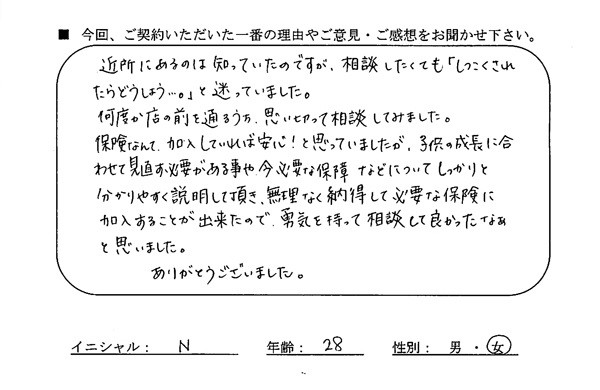 ■ 今回、ご契約いただいた一番の理由やご意見・ご感想をお聞かせ下さい。
近所にあるのは知っていたのですが、相談したくても「しつこくされ
たらどうしよう…。」と迷っていました。
何度か店の前を通るうち、思い切って相談してみました。
保険なんて、加入していれば安心！と思っていましたが、子供の成長に合
わせて見直す必要がある事や、今必要な保障などについてしっかりと
分かりやすく説明して頂き、無理なく納得して必要な保険に
加入することが出来たので、勇気を持って相談して良かったなぁ
と思いました。
ありがとうございました。
イニシャル： N 年齢： 28 性別： 男 ・ 女